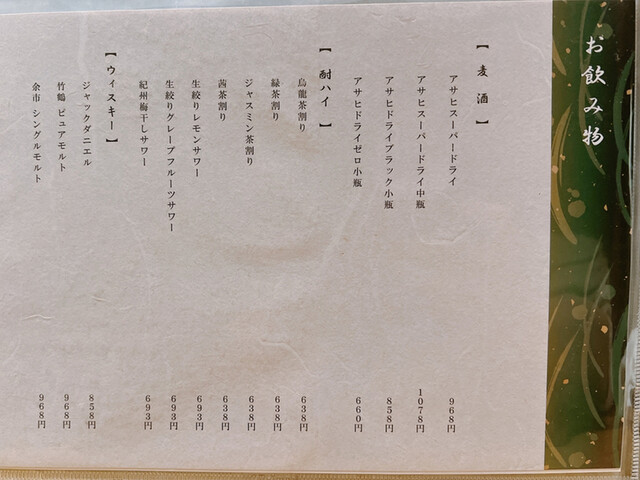 お飲み物
【麦酒】
アサヒスーパードライ 968円
アサヒスーパードライ中瓶 1078円
アサヒドライブラック小瓶 858円
アサヒドライゼロ小瓶 660円
【酎ハイ】
烏龍茶割り 638円
緑茶割り 638円
ジャスミン茶割り 638円
茜茶割り 638円
生絞りレモンサワー 693円
生絞りグレープフルーツサワー 693円
紀州梅干しサワー 693円
【ウィスキー】
ジャックダニエル 858円
竹鶴 ピュアモルト 968円
余市 シングルモルト 968円